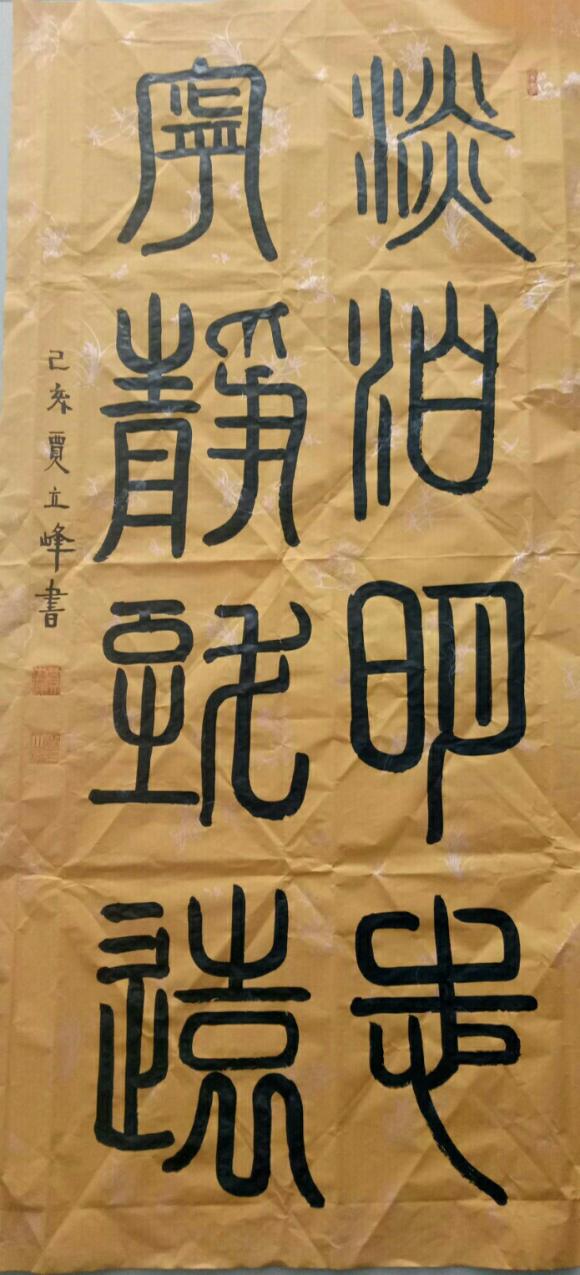 淡泊明志
寧靜致遠
己亥賈立峰書